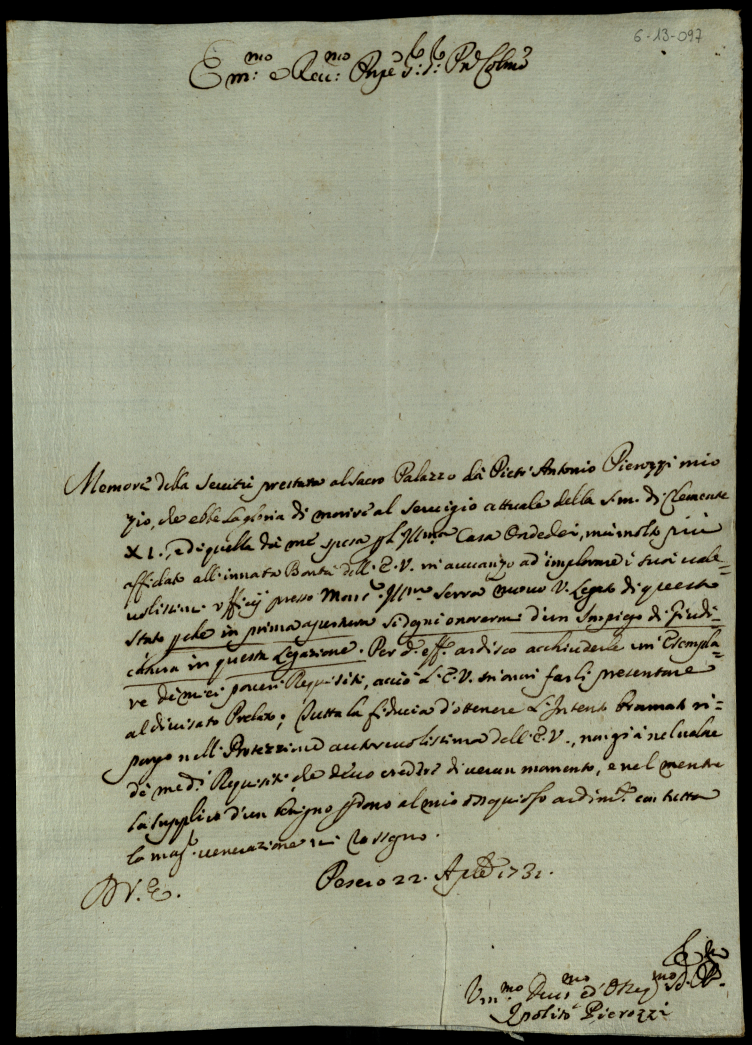 6-13-097
Em:mo e Rev:mo Pnpe S:r S:r Pne Colmo
Memore della Servitù prestata al Sacro Palazzo da Pietr' Antonio Pierozzi mio
zio, che ebbe la gloria di morire al servigio attuale della S.m. di Clemente
XI., e di quella da me spesa p l'Illma Casa Ondedei, mà molto più
affidato all'innata Bontà dell'E.V. m'avvanzo ad implorare i suoi vale=
volissimi ufficij presso Monsr Illmo Serra nuovo V. Legato di questo
Stato pche in prima apertura si degni onorarmi d'un Impiego di Giudi=
catura in questa Legazione. Per d.o eff.o ardisco acchiuderle un' Esempla=
re de miei poveri Requisiti, acciò l'E.V. si onori farli presentare
al divisato Prelato; Tutta la fiducia d'ottenere l'Intento bramato ri=
pongo nell'Protezzione autorevolissima dell'E.V., non già nel valore
de med.i Requisiti, che devo credere di verun momento, e nel mentre
la supplico d'un benigno pdono al mio ossequioso ardim.to con tutta
la magr venerazione mi rassegno.
D V. E.
Pesero 22. Aple 1731.
Um:mo Dev:mo ed Obg:mo Se:re
Ipolito Pierozzi